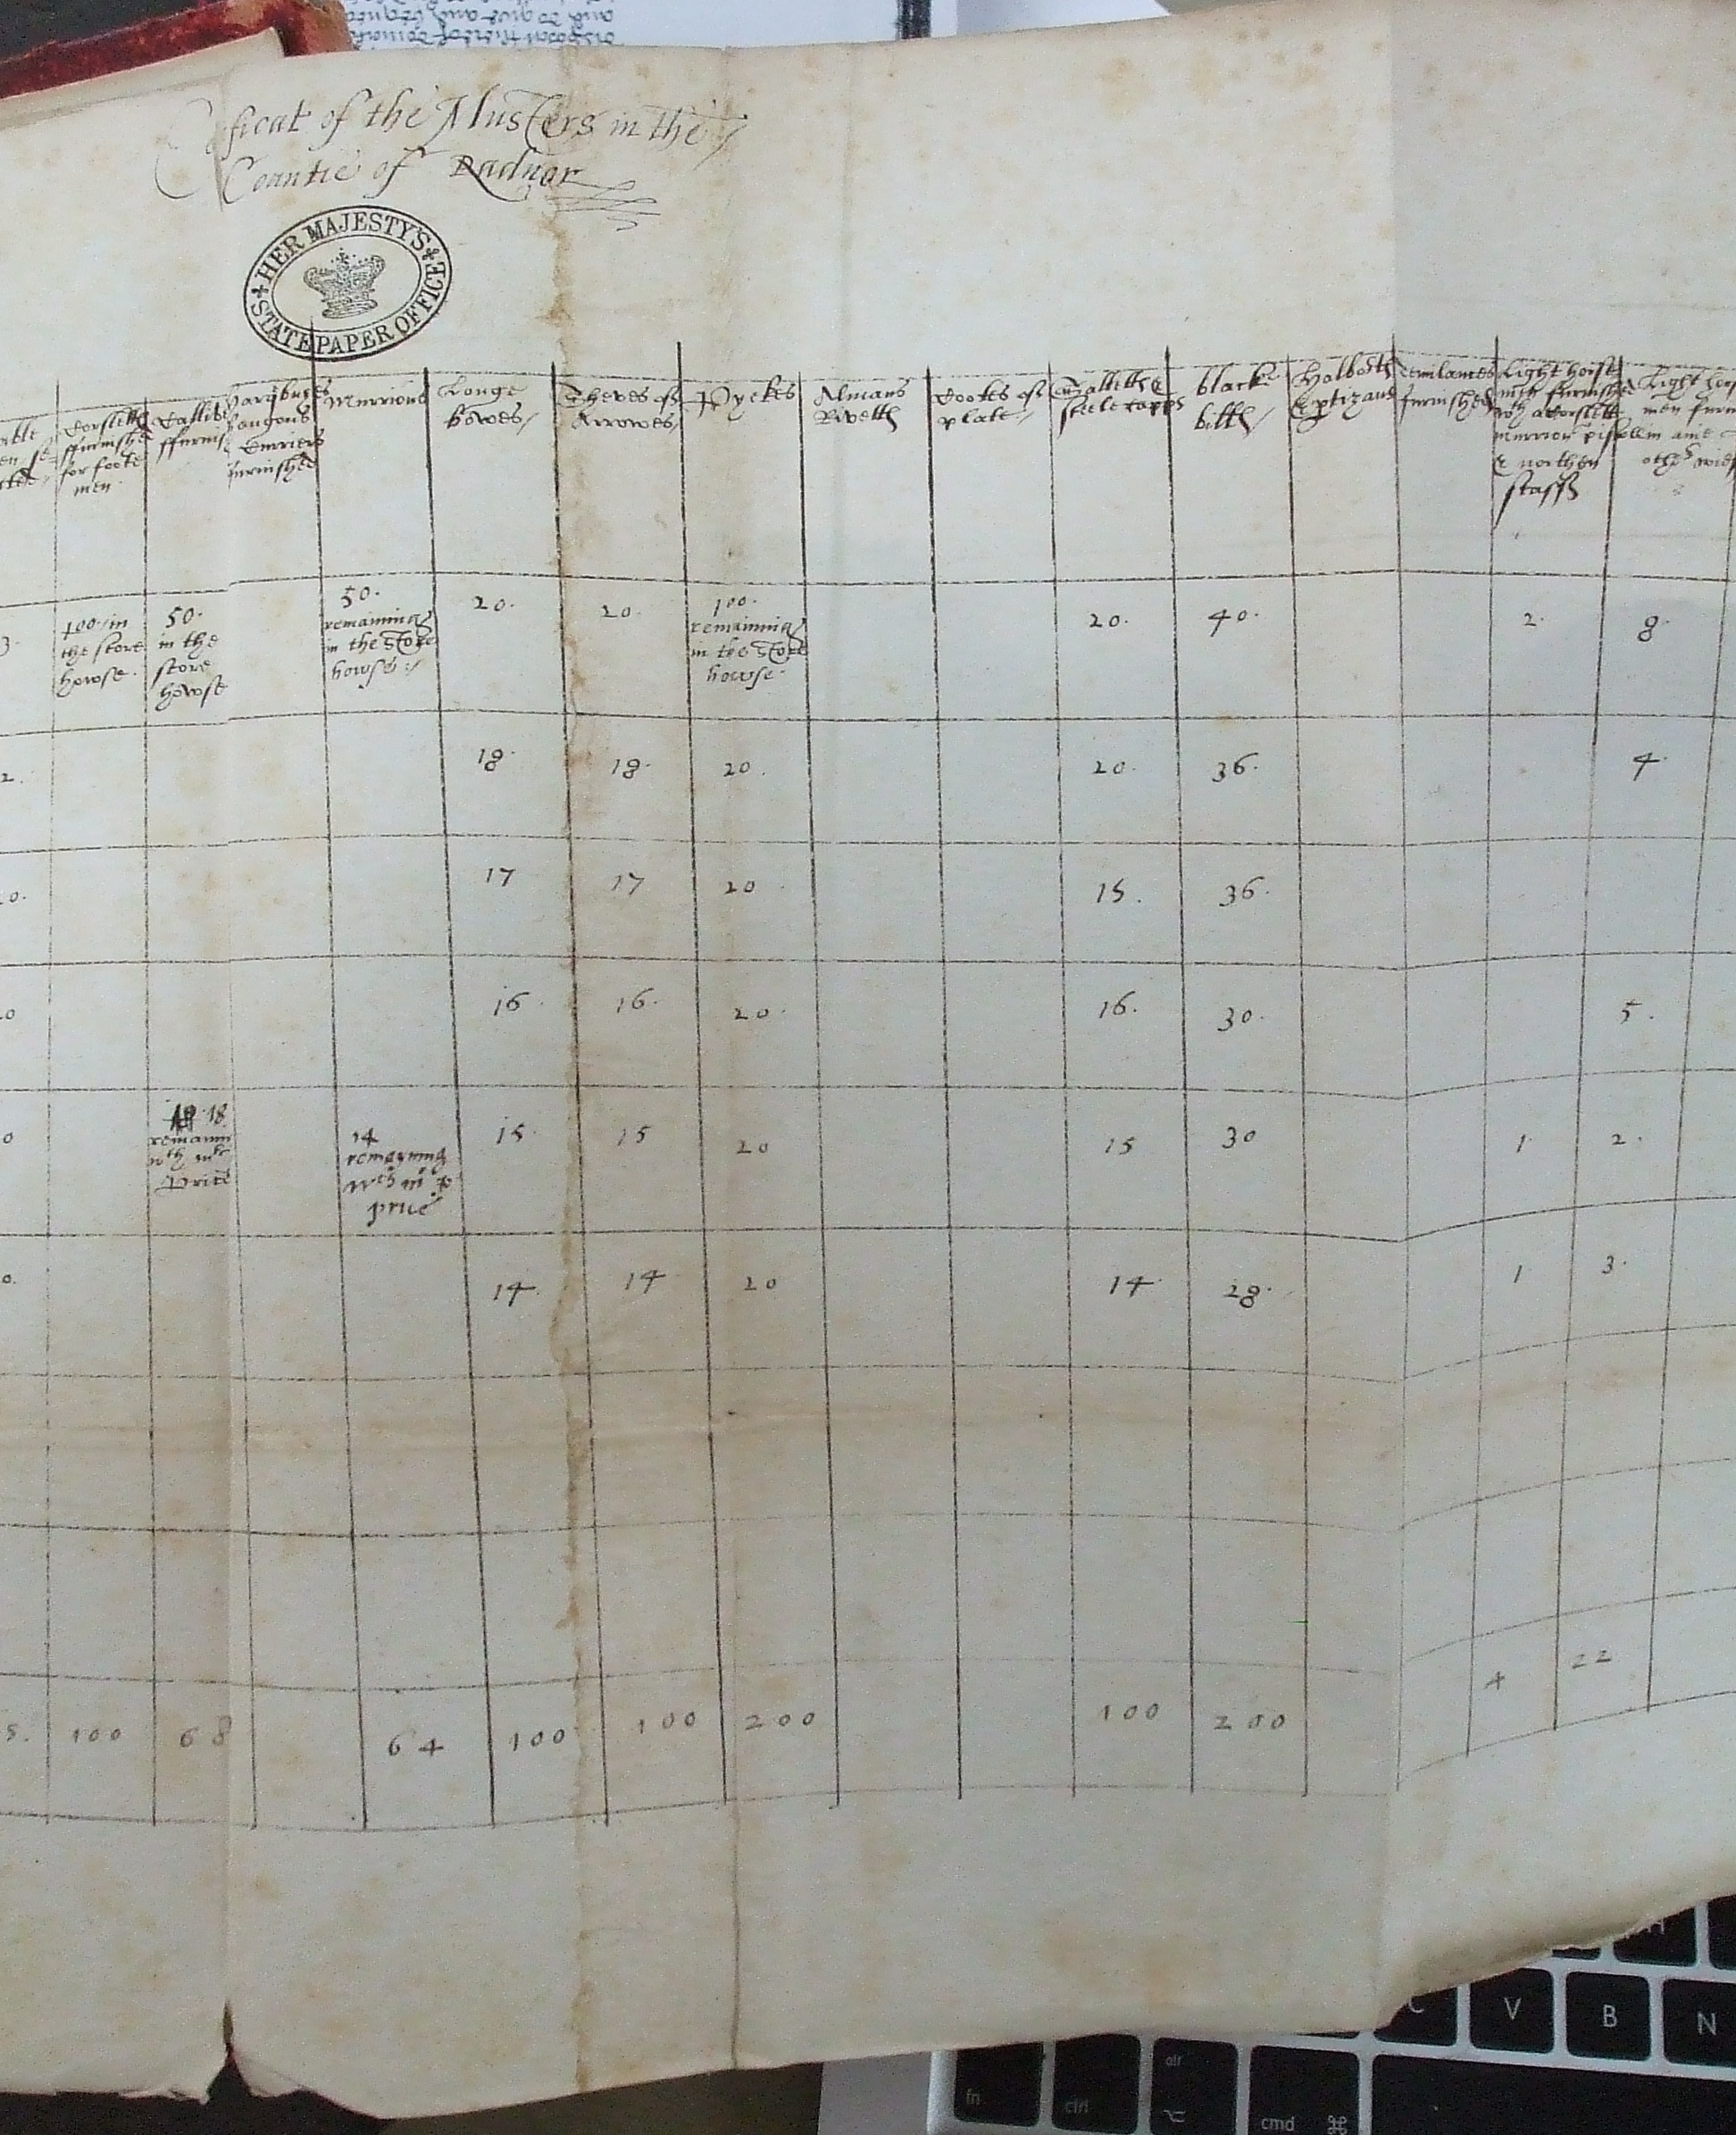 ficat of the Musters in the
Countie of Radnor
HER MAJESTY'S
STATE PAPER OFFICE
Corsletts
ffurnished
for foote
men
Murrions
Longe
bowes
Sheves of
Arrowes
Pyckes
Almans
Rivetts
Cootes of
plate
Salletts &
steele capps
blacke
bills
Halbarts
& ptizans
Demilances
furnished
Light horse
men furnished
wth a Corslett
murrion pistoll
& northen
staff
Light hors
men furn
100 in
the store
howse
50.
in the
store
howse
50.
remaining
in the store
howse
20. 20.
100.
remaining
in the store
howse
20. 40. 2. 8.
2. 18. 18. 20. 20. 36. 4.
17 17 20 15. 36.
16 16. 20. 16. 30. 5.
18.
remainin
wth mr
Price
14
remayning
wth mr
price
15. 15 20 15 30 1 2.
14 14 20 14 28. 1 3.
5. 100 68 64 100 100 200 100 200 4 22
C V B N
alt
fn ctrl cmd